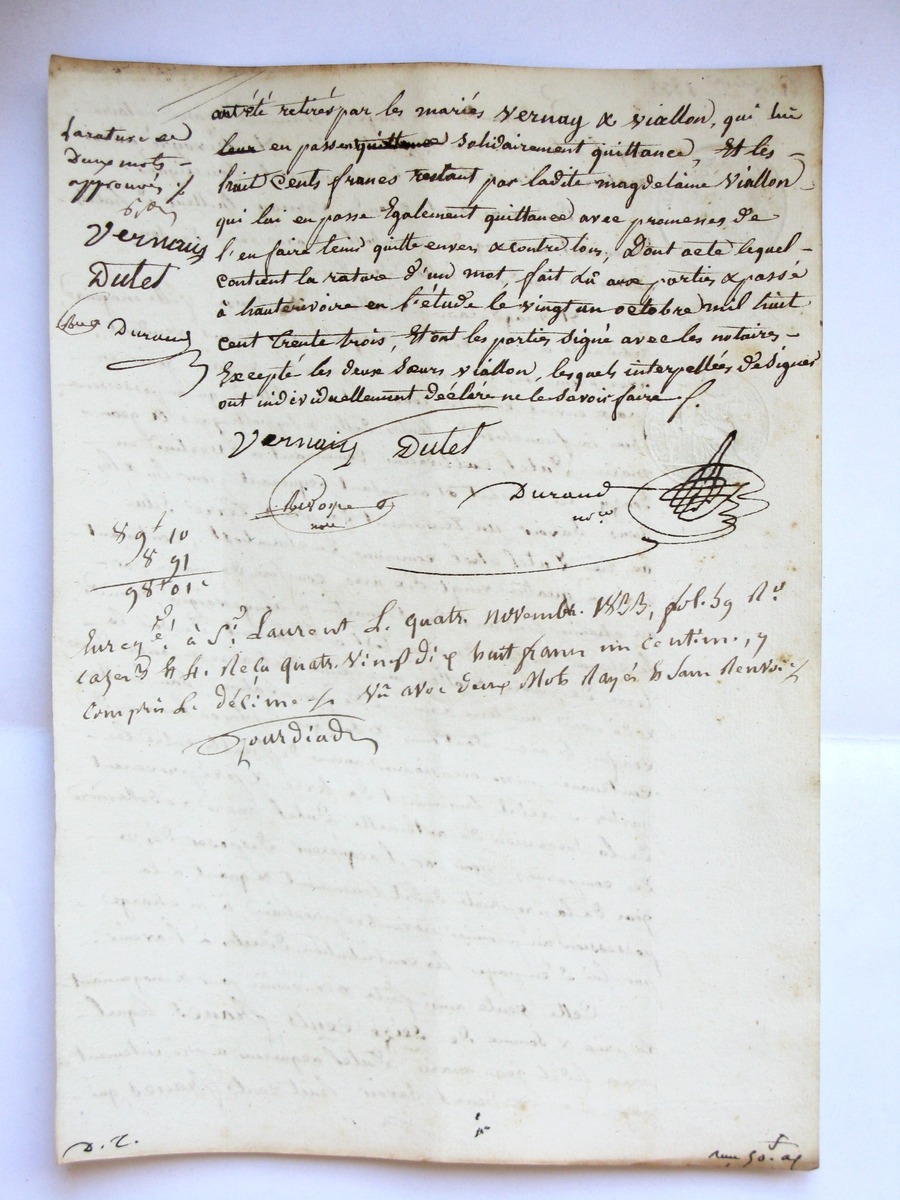 ont été retirés par les mariés Vernay & Viallon, qui lui
leur en passent quittance solidairement quittance, Et les
huit Cents francs restant par ladite magdelaine Viallon
qui lui en passe Egalement quittance avec promesses de
l'en faire tenir quitte envers & contre tous, Dont acte lequel
contient la rature d'un mot, fait lû aux parties & passé
à hauterivoire en l'étude le vingt un octobre mil huit
cent trente trois, Et ont les parties signé avec les notaires
Excepté les deux Sœurs viallon, lesquels interpellées de Signer
ont individuellement déclaré ne le Savoir faire ./.
La rature de
Deux mots
approuvés ./.
Vernais
Dutel
Durand
Vernais Dutel
Durand
nore nore
89f 10
8 91
98f 01c
Enregé à St Laurent le quatre novembre 1833, fol. 59 Ro
cazes 3 & 4. Reçu quatre vingt dix huit francs un centime, y
compris le décime ./. Vû avec deux Mots Rayés & sans Renvoi ./.
D. T.